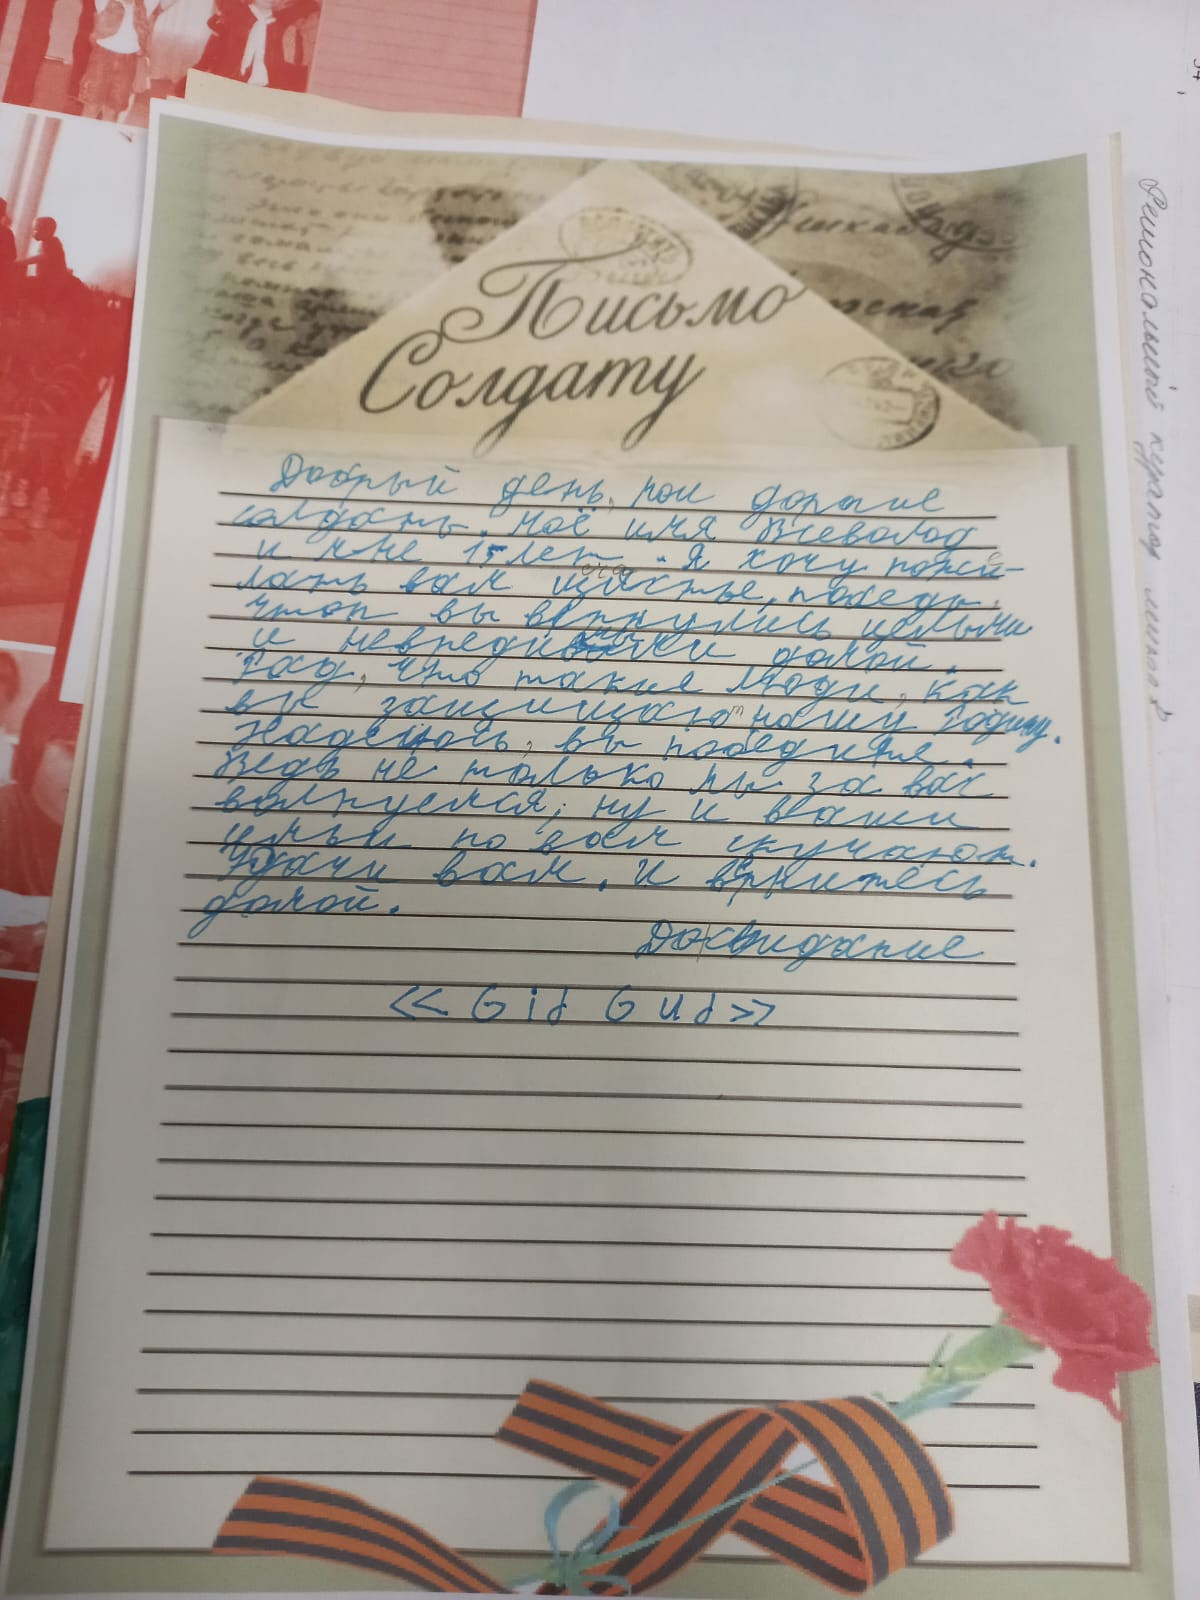 Письмо
Солдату
Добрый день, мои дорогие
солдаты. Моё имя Всеволод
и мне 15 лет. Я хочу поже-
лать вам счастье, победы.
чтоп вы вернулись целыми
и невредимыми домой.
Рад, что такие люди, как
вы защищают нашу Родину.
Надеюсь, вы победите.
Ведь не только мы за вас
волнуемся, ну и ваши
симьи по вам скучают.
Удачи вам. И вернитесь
домой.
Досвидание
<< Gid Gud>>